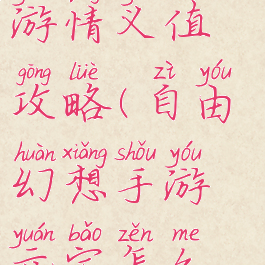 游情义值
gōng lüè zì yóu
攻略(自由
huàn xiǎng shǒu yóu
幻想手游
yuán bǎo zěn me
元宝怎么